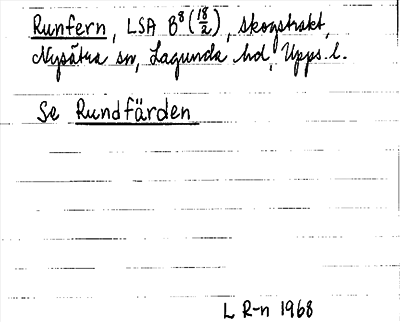 Runfern, LSA B⁸ (18/2), skogstrakt,
Nysätra sn, Lagunda hd, Upps. l.
Se Rundfärden
L R-n 1968